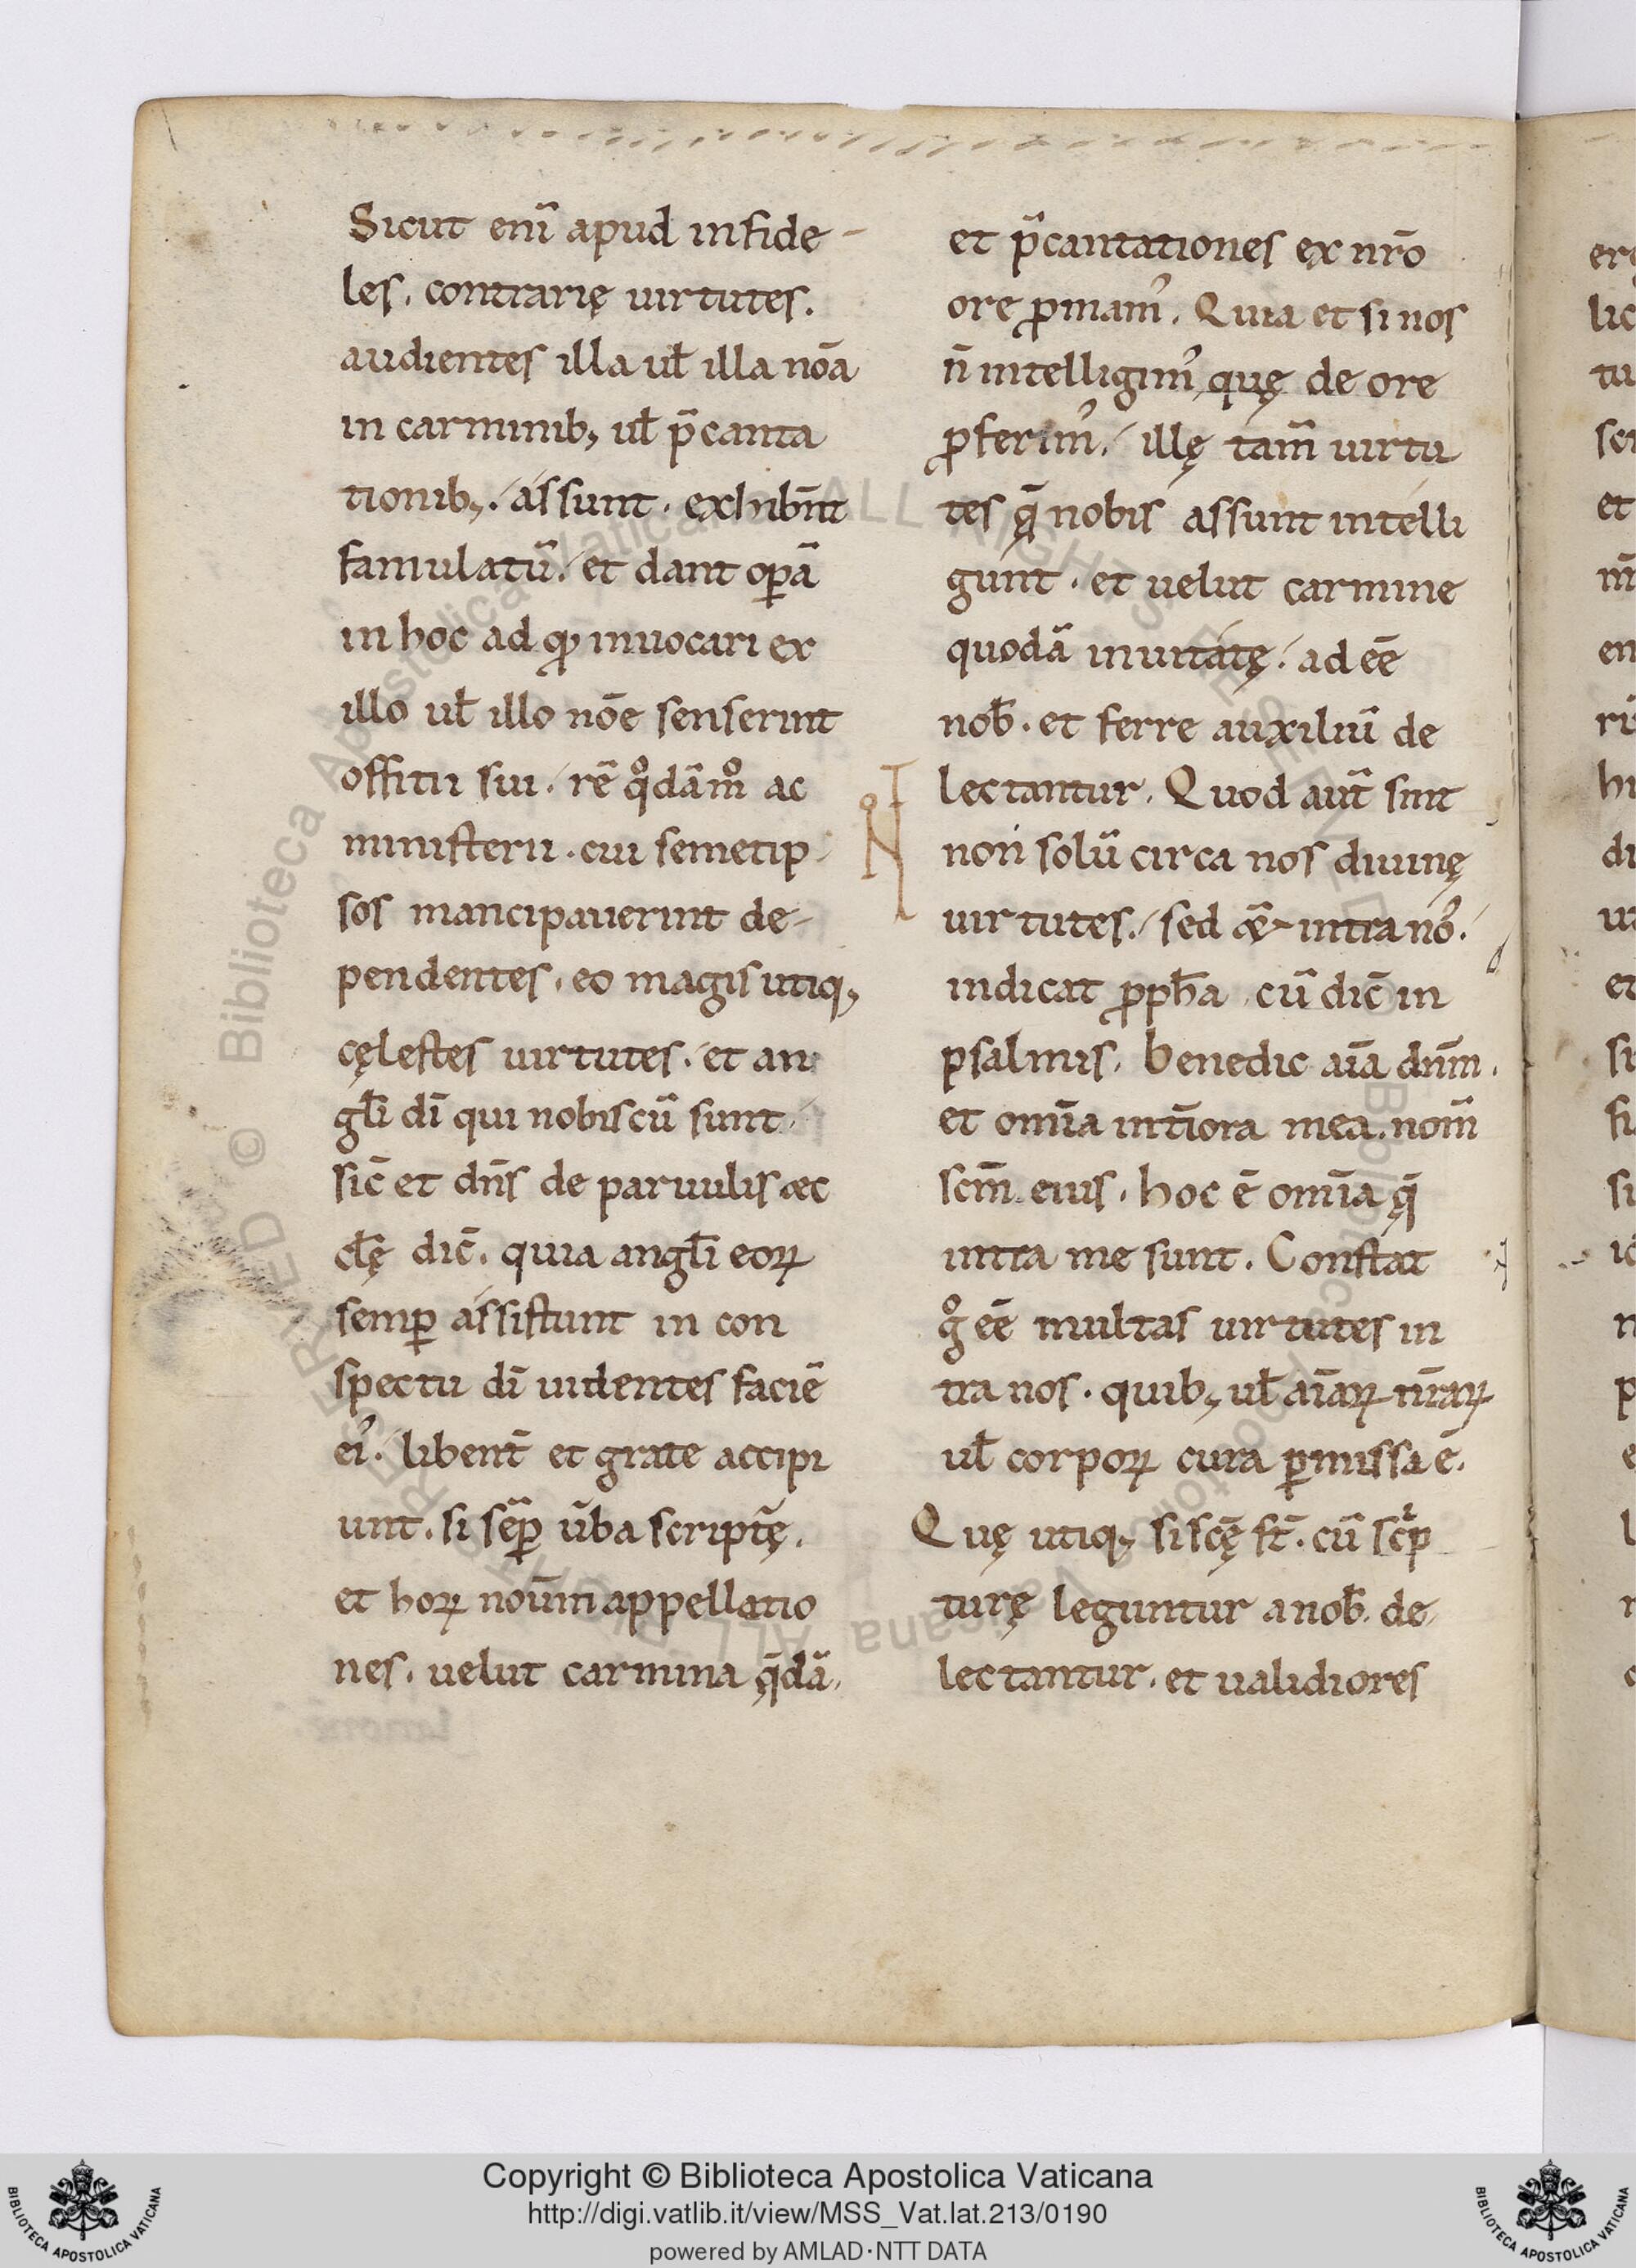 Sicut eni᷃ apud infide-
les. contrarię uirtutes.
audientes illa ul̄ illa nōa
in carminib; ul̄ p̄canta
tionib;. assunt. exhibn̄t
famulatū. et dant oꝑā
in hoc ad qđ inuocari ex
illo ul̄ illo nōe senserint
offitii sui. rē qͦdām̊ ac
ministerii. cui semetip-
sos mancipauerint de-
pendentes. eo magis utiq;
cęlestes uirtutes. et an
gl̄i dī qui nobiscū sunt.
sic̄ et dn̄s de paruulis æc
cl̄ę dic̄. quia angl̄i eoꝝ
semꝑ assistunt in con
spectu dī uidentes faciē
ei᾿. libent̄ et grate accipi
unt. si sēꝑ ūba scriptę̄.
et hoꝝ noūm appellatio
nes. uelut carmina q̄dā.
et p̄cantationes ex nr̄o
ore ꝓmam᾿. Quia et si nos
n̄ intelligim᾿ quę de ore
ꝓferim᾿. illę tam̄ uirtu
tes q̄ nobis assunt intelli
gunt. et uelut carmine
quodā inuitatę. ad eē
nob̄. et ferre auxiliū de
lectantur. Quod aut̄ sint
non solū circa nos diuinę
uirtutes. sed &̄ intra no᾿.
indicat ꝓph̄a cū dic̄ in
psalmis. Benedic aīa dn̄m.
et omīa int̄iora mea. nom̄
scm̄ eius. hoc ē omīa q̄
intra me sunt. Constat
gͦ eē multas uirtutes in
tra nos. quib; ul̄ aīaꝝ nr̄aꝝ
ul̄ corpoꝝ cura ꝑmissa ē.
Quę utiq; si scę̄ st̄. cū sc̄p
turę leguntur a nob̄. de
lectantur. et ualidiores
Copyright © Biblioteca Apostolica Vaticana
http://digi.vatlib.it/view/MSS_Vat.lat.213/0190
powered by AMLAD·NTT DATA
BIBLIOTECA APOSTOLICA VATICANA
BIBLIOTECA APOSTOLICA VATICANA